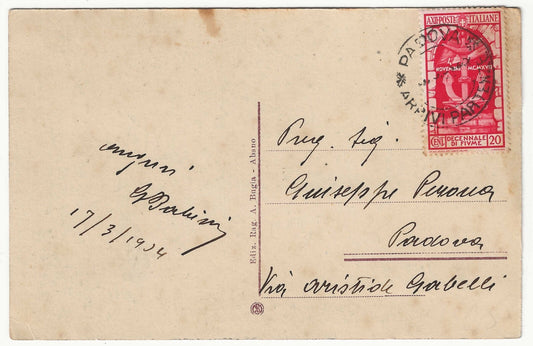 auguri
GBabini
17/3/1934
Ediz. Rag. A. Bugia - Abano
PADOVA
ARRIVI PARTENZE
A.XII·POSTE ITALIANE
NOVEMBRE MCMXVIII
CENT. DECENNALE DI FIUME 20
Preg. Sig.
Giuseppe Perona
Padova
Via Aristide Gabelli